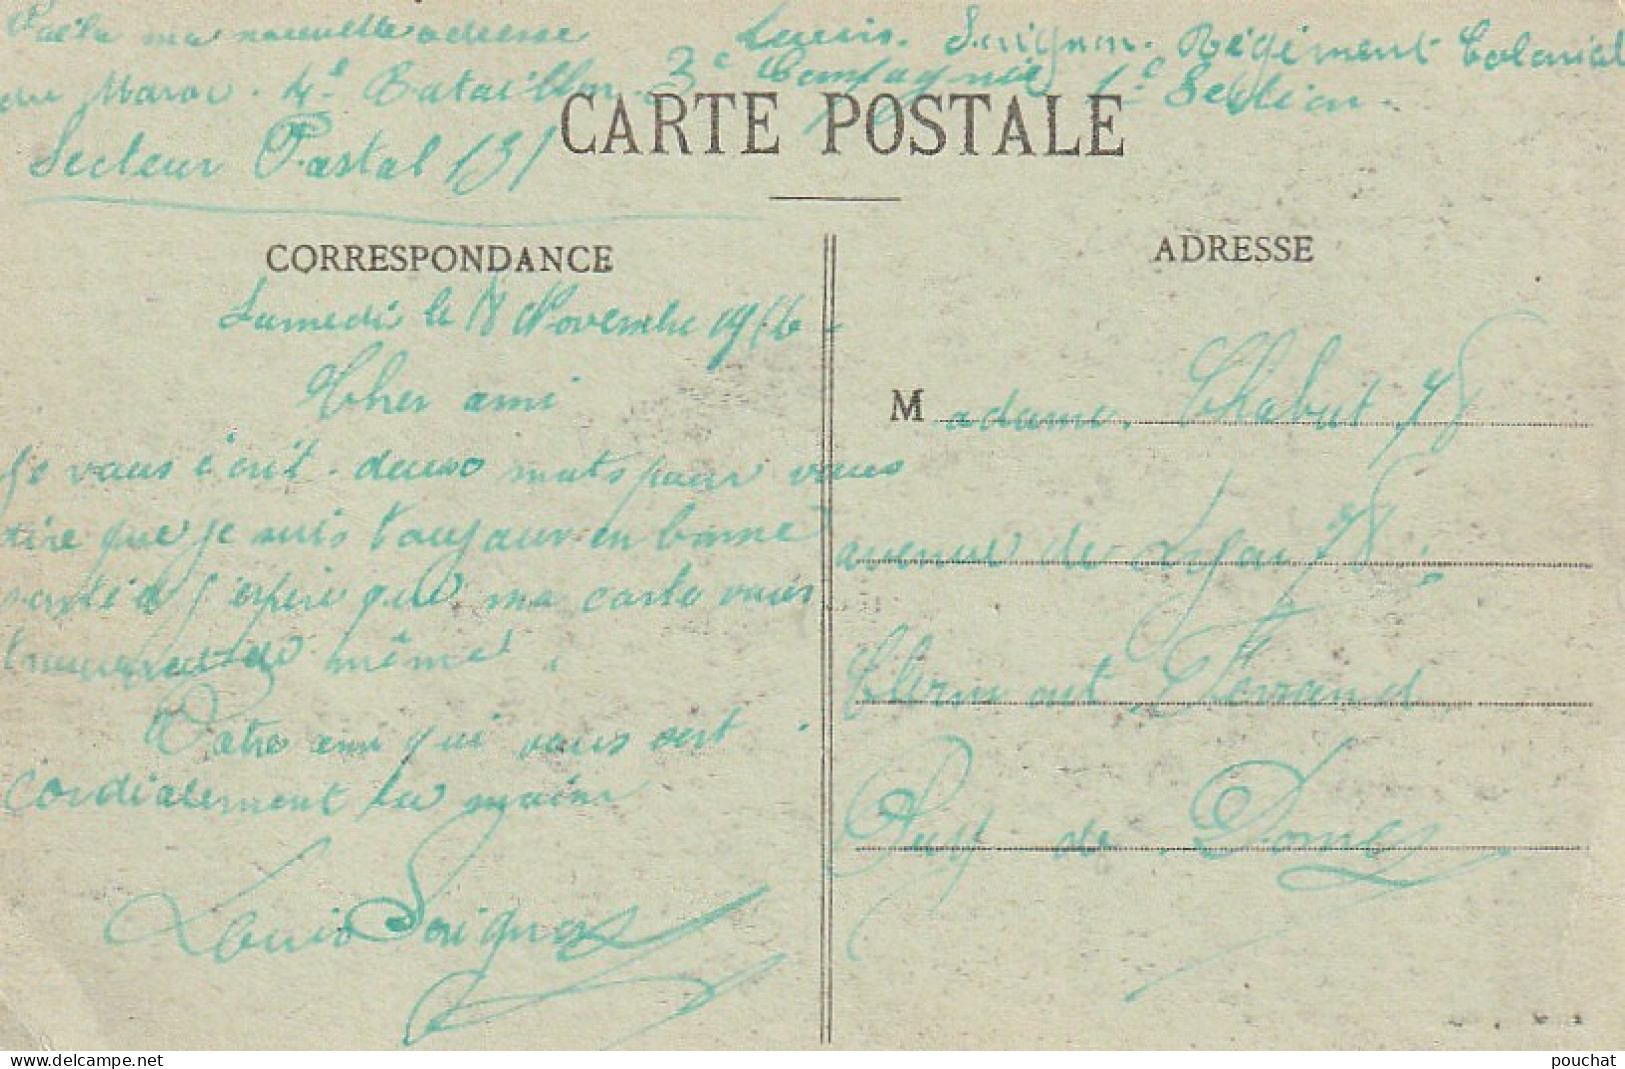 Voila ma nouvelle adresse Louis. Sauignon. Régiment Colonial
du Maroc. 4e Bataillon 3e Compagnie 1e Section.
CARTE POSTALE
Secteur Postal 131
CORRESPONDANCE
ADRESSE
Samedi le 18 Novembre 1916
Cher ami
Je vous écrit deux mots pour vous
dire que je suis toujour en bonne
santé et j'espère que ma carte vous
trouverat de même.
Votre ami qui vous sert
cordialement la main
Louis
Madame. Chabut 78
avenue de Lyon 78.
Clermont Ferrand
Puy de Dome
pouchat